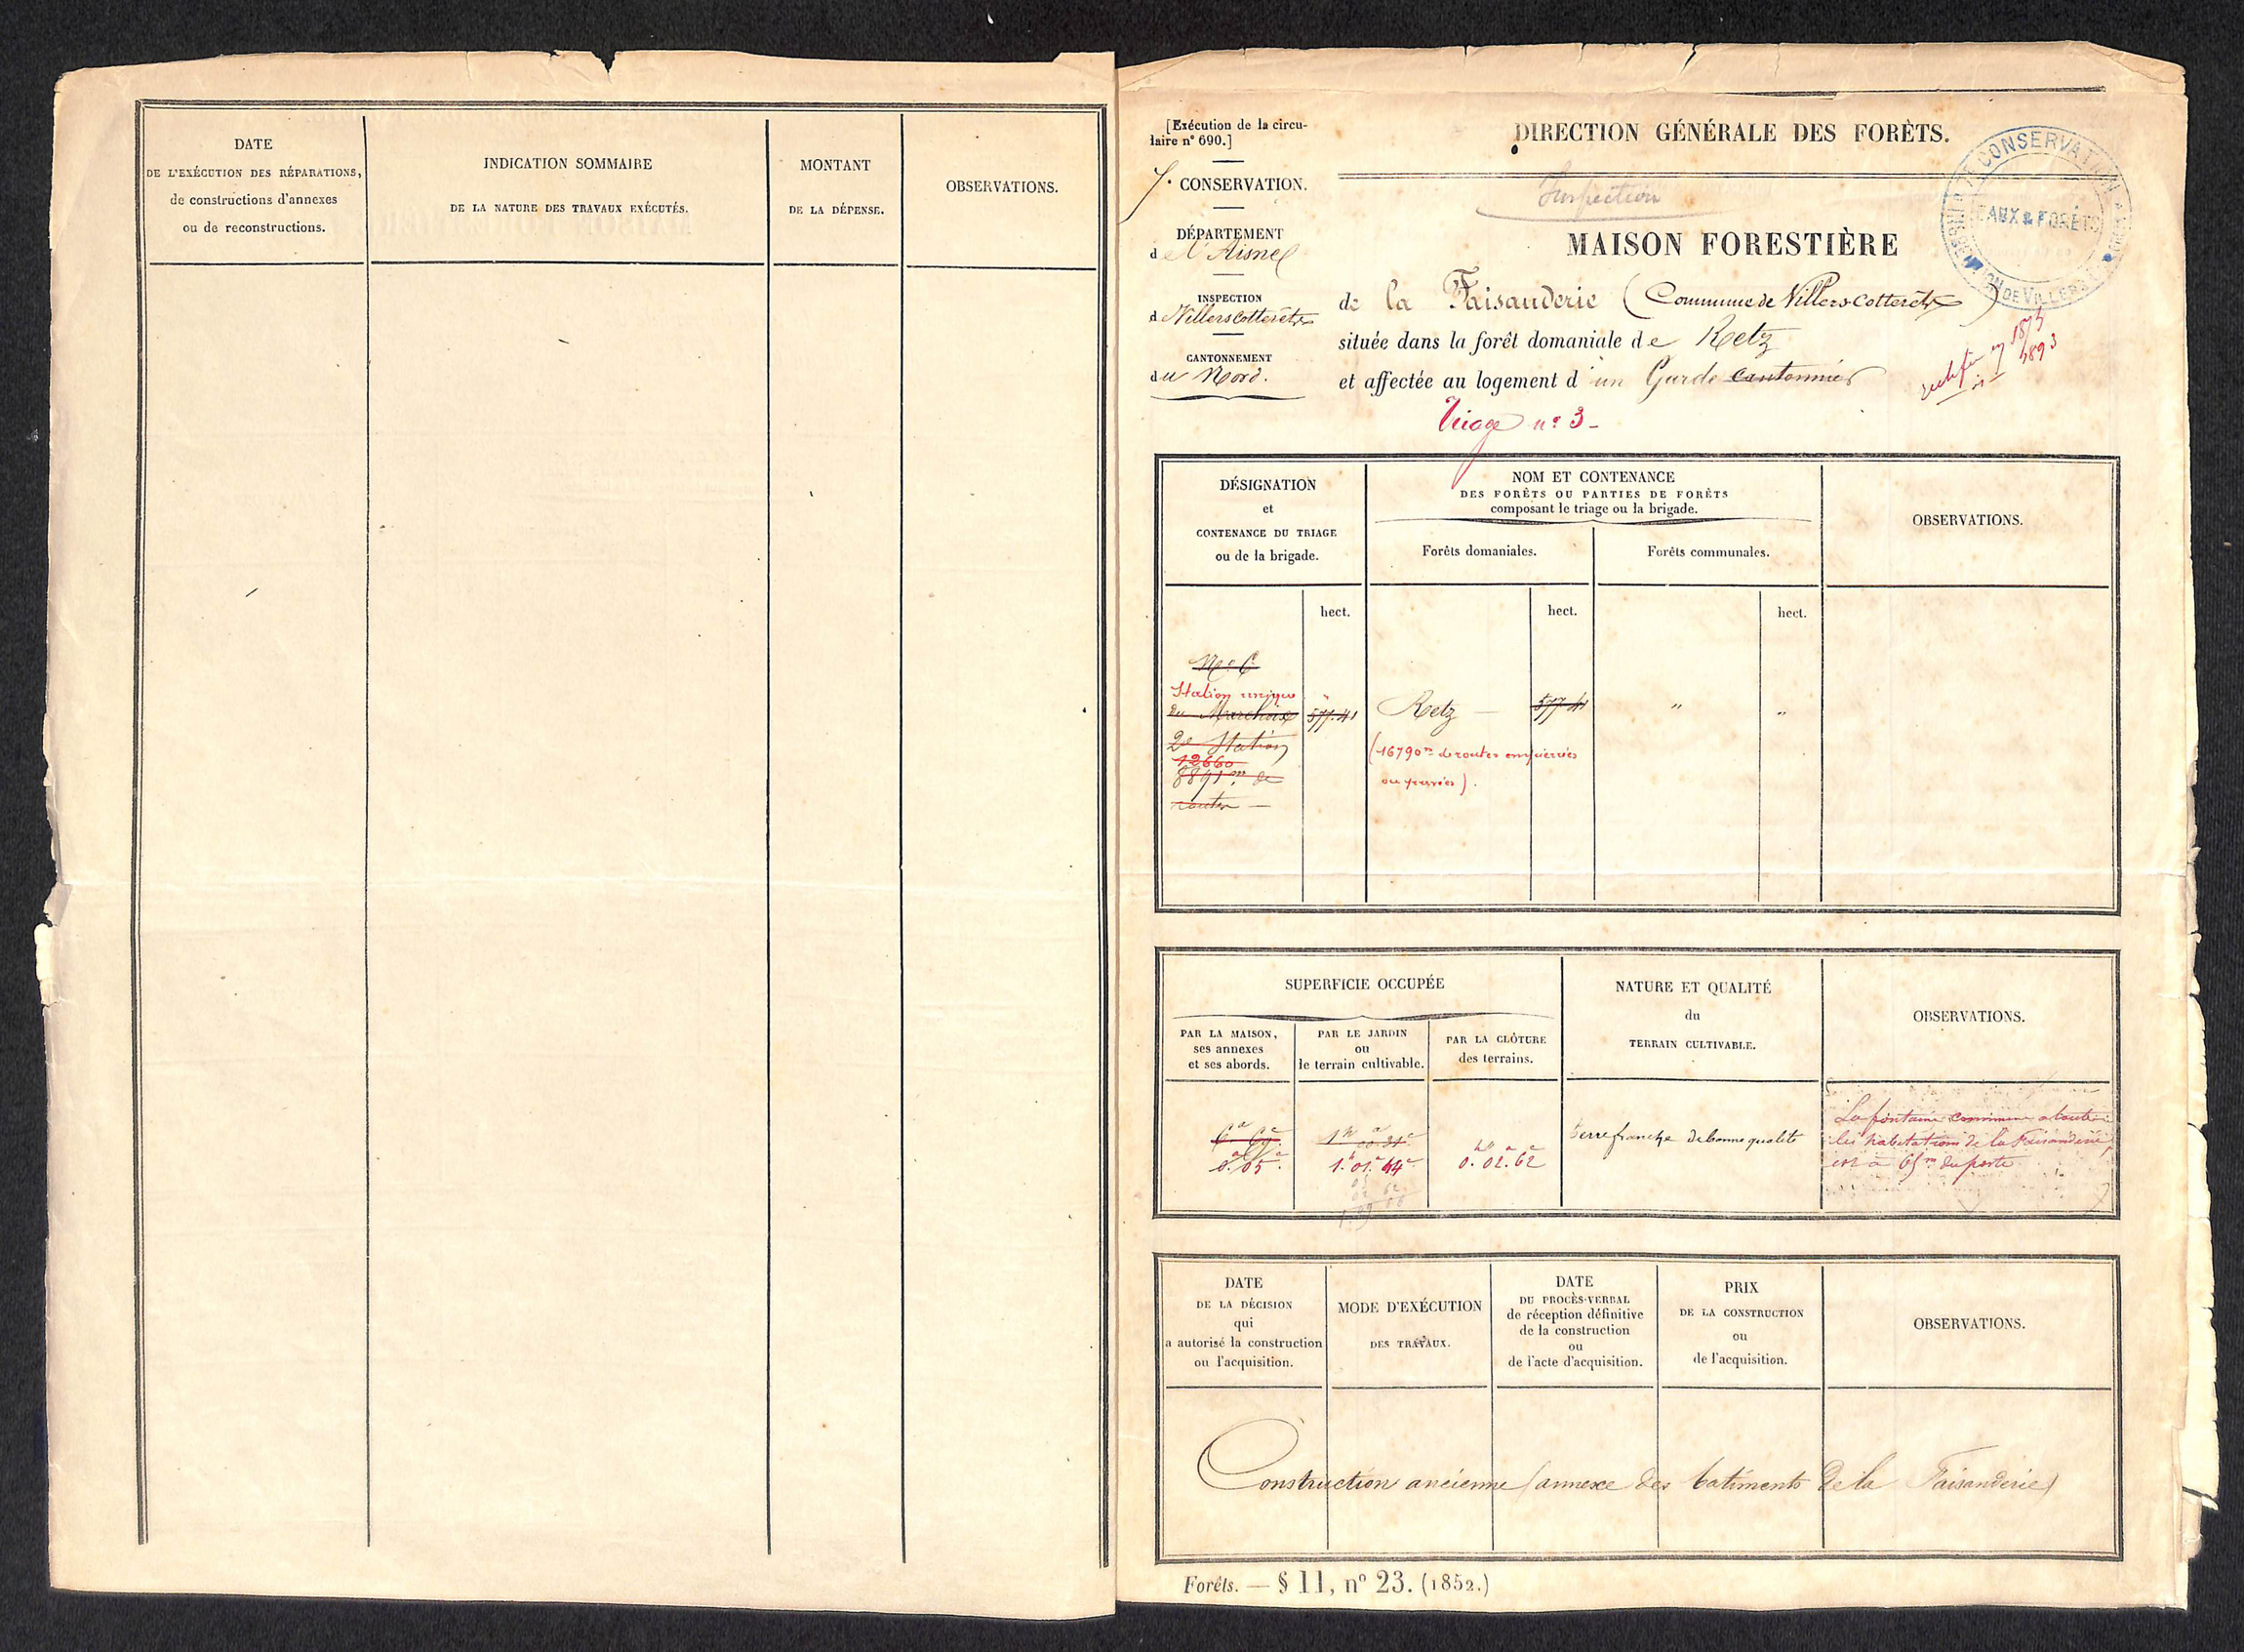 DATE
DE L'EXÉCUTION DES RÉPARATIONS,
de constructions d'annexes
ou de reconstructions.
INDICATION SOMMAIRE
DE LA NATURE DES TRAVAUX EXÉCUTÉS.
MONTANT
DE LA DÉPENSE.
OBSERVATIONS.
[Exécution de la circu-
laire n° 690.]
7. CONSERVATION.
DÉPARTEMENT
de l'Aisne
INSPECTION
de Villers cotterêts
CANTONNEMENT
du Nord.
DIRECTION GÉNÉRALE DES FORÊTS.
Inspection
CONSERVATION
EAUX & FORÊTS
DE VILLERS
MAISON FORESTIÈRE
de la Faisanderie (Commune de Villers-Cotterêts)
située dans la forêt domaniale de Retz
et affectée au logement d'un Garde cantonnier
Triage n° 3 -
1875
1893
DÉSIGNATION
et
CONTENANCE DU TRIAGE
ou de la brigade.
NOM ET CONTENANCE
DES FORÊTS OU PARTIES DE FORÊTS
composant le triage ou la brigade.
Forêts domaniales.
Forêts communales.
OBSERVATIONS.
hect.
hect.
hect.
Station unique
du Marchoix 577.41 Retz — 577.41 " "
2e Station
12660
8891 m. de
routes —
(16790m de routes empierrées
ou pavées).
SUPERFICIE OCCUPÉE
PAR LA MAISON,
ses annexes
et ses abords.
PAR LE JARDIN
ou
le terrain cultivable.
PAR LA CLÔTURE
des terrains.
NATURE ET QUALITÉ
du
TERRAIN CULTIVABLE.
OBSERVATIONS.
0.05 1.h 01.a 44c 0.h 02.a 62c
terre franche de bonne qualité
La fontaine commune à toutes
les habitations de la Faisanderie
est à 65m du poste
DATE
DE LA DÉCISION
qui
a autorisé la construction
ou l'acquisition.
MODE D'EXÉCUTION
DES TRAVAUX.
DATE
DU PROCÈS-VERBAL
de réception définitive
de la construction
ou
de l'acte d'acquisition.
PRIX
DE LA CONSTRUCTION
ou
de l'acquisition.
OBSERVATIONS.
Construction ancienne (annexe des batiments de la Faisanderie)
Forêts. — § 11, n° 23. (1852.)